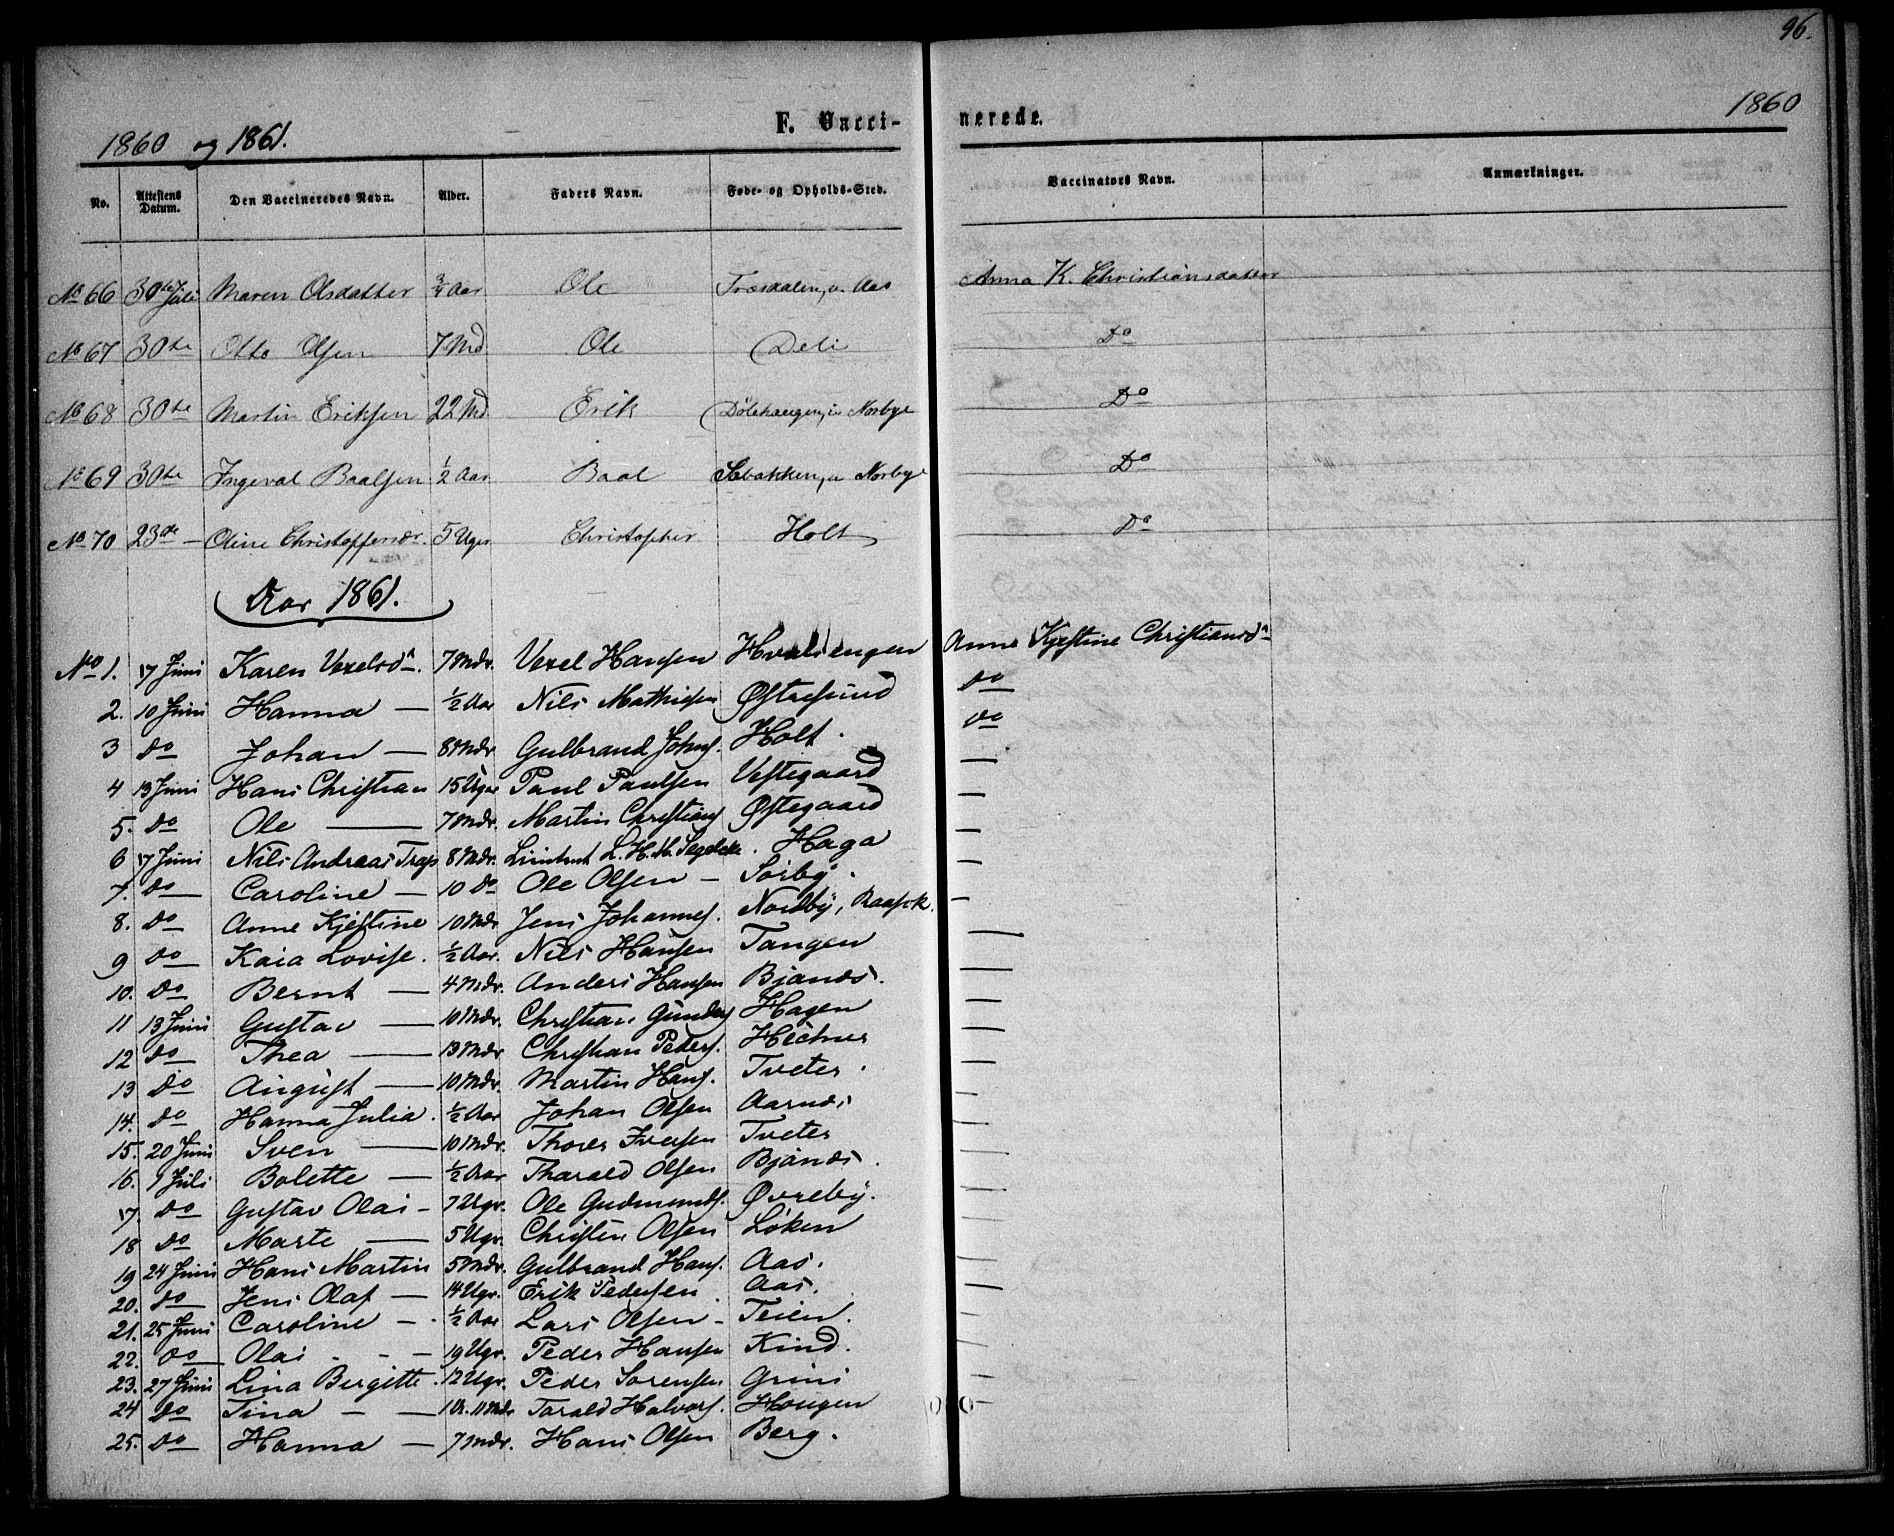 96.
1860 og 1861. F. Vacci- nerede. 1860
No. Attestens Datum. Den Vaccineredes Navn. Alder. Faders Navn. Føde- og Opholds-Sted. Vaccinators Navn. Anmærkninger.
No 66 30te Juli Maren Olsdatter 3/4 Aar Ole Træsdalen, u. Aas Anna K. Christiansdatter
No 67 30te Otto Olsen 7 Md Ole Deli Do
No 68 30te Martin Eriksen 22 Md. Erik Dølehaugen, u. Norbye Do
No 69 30te Ingeval Baalsen 1/2 Aar Baal Sebakken, u Norbye Do
No 70 23de – Oline Christoffersdr. 5 Uger Christopher Holt Do
Aar 1861.
No 1. 17 Juni Karen Vexelsdr. 7 Mdr. Vexel Hansen Anne Kjestine Christiansdr
2. 10 Juni Hanna — 1/2 Aar Nils Mathisen Østresund Do
3 Do Johan — 8 Mdr Gulbrand Johns. Holt. Do
4 13 Juni Hans Christian 15 Uger Paul Paulsen Vestegaard —
5. Do Ole — 7 Mdr. Martin Christians Østegaard —
6 17 Juni Nils Andreas Trap 8 Mdr. L. H. M. Segelcke. Haga —
7. Do Caroline — 10 Do Ole Olsen — Sørby. —
8. Do Anne Kjestine 10 Mdr Jens Johannes. Nordby, Raaf.k. —
9 Do Kaia Lovise. 1/2 Aar. Nils Hansen Tangen —
10. Do Bernt — 4 Mdr. Anders Hansen Bjanæs. —
11 13 Juni Gustav — 10 Mdr. Christian Gunders Hagen —
12 Do Thea — 13 Mdr Christian Peders. —
13 Do August — 10 Mdr. Martin Hans. Tveter. —
14. Do Hanna Julia. 1/2 Aar Johan Olsen Aarnæs —
15. 20 Juni Sven — 10 Mdr Thores Iversen Tveter —
16. 9 Juli Bolette — 1/2 Aar Tharald Olsen Bjanæs. —
17. Do Gustav Olai — 7 Ugr. Ole Gudmunds. Øvreby. —
18 Do Marte — 5 Ugr. Christen Olsen Løken —
19 24 Juni Hans Martin 5 Mdr. Gulbrand Hans. Aas. —
20. Do Jens Olaf — 14 Ugr. Erik Pedersen. Aas. —
21. 25 Juni Caroline — . 1/2 Aar Lars Olsen — Teien. —
22. Do Olai - - — 19 Ugr. Peder Hansen Kind. —
23. 27 Juni Lina Bergitte. 12 Ugr. Peder Sørensen Grini —
24 Do Tina — — 1 A. 11 Mdr Tarald Halvors. Hougen —
25. Do Hanna — 7 Mdr. Hans Olsen Berg.